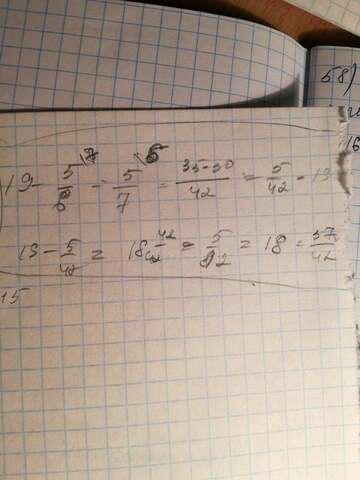 58)
16
19 - 5/6 \7 - 5/7 \6 = 35-30/42 = 5/42 - 19
19 - 5/42 = 18 42/42 = 5/42 = 18 - 37/42
15